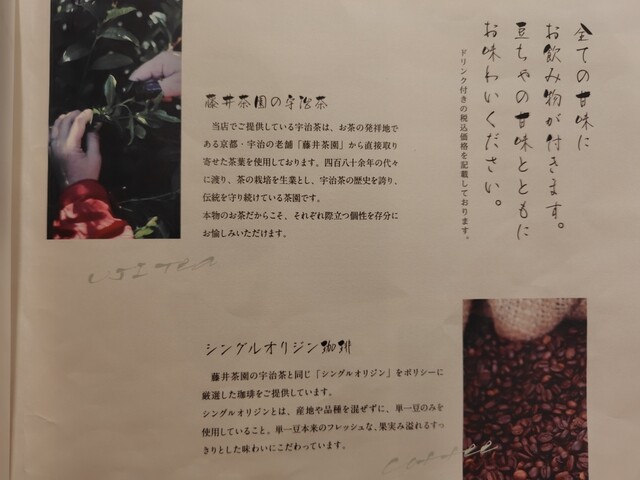 全ての甘味に
お飲み物が付きます。
豆ちゃの甘味とともに
お味わいください。
ドリンク付きの税込価格を記載しております。
藤井茶園の宇治茶
当店でご提供している宇治茶は、お茶の発祥地で
ある京都・宇治の老舗「藤井茶園」から直接取り
寄せた茶葉を使用しております。四百八十余年の代々
に渡り、茶の栽培を生業とし、宇治茶の歴史を誇り、
伝統を守り続けている茶園です。
本物のお茶だからこそ、それぞれ際立つ個性を存分に
お愉しみいただけます。
シングルオリジン珈琲
藤井茶園の宇治茶と同じ「シングルオリジン」をポリシーに
厳選した珈琲をご提供しています。
シングルオリジンとは、産地や品種を混ぜずに、単一豆のみを
使用していること。単一豆本来のフレッシュな、果実み溢れるすっ
きりとした味わいにこだわっています。
Coffee